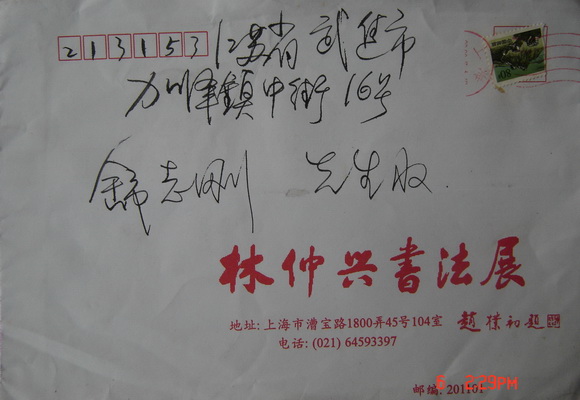 213153 江苏省武进市
加峰镇中街16号
舒志刚 先生收
林仲兴书法展
地址: 上海市漕宝路1800弄45号104室 趙樸初題
电话: (021) 64593397
邮编: 201101
6 2:29PM